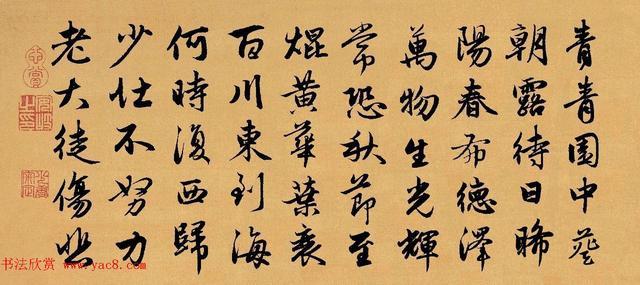 青青園中葵
朝露待日晞
陽春布德澤
萬物生光輝
常恐秋節至
焜黃華葉衰
百川東到海
何時復西歸
少壯不努力
老大徒傷悲
书法欣赏 www.yac8.com